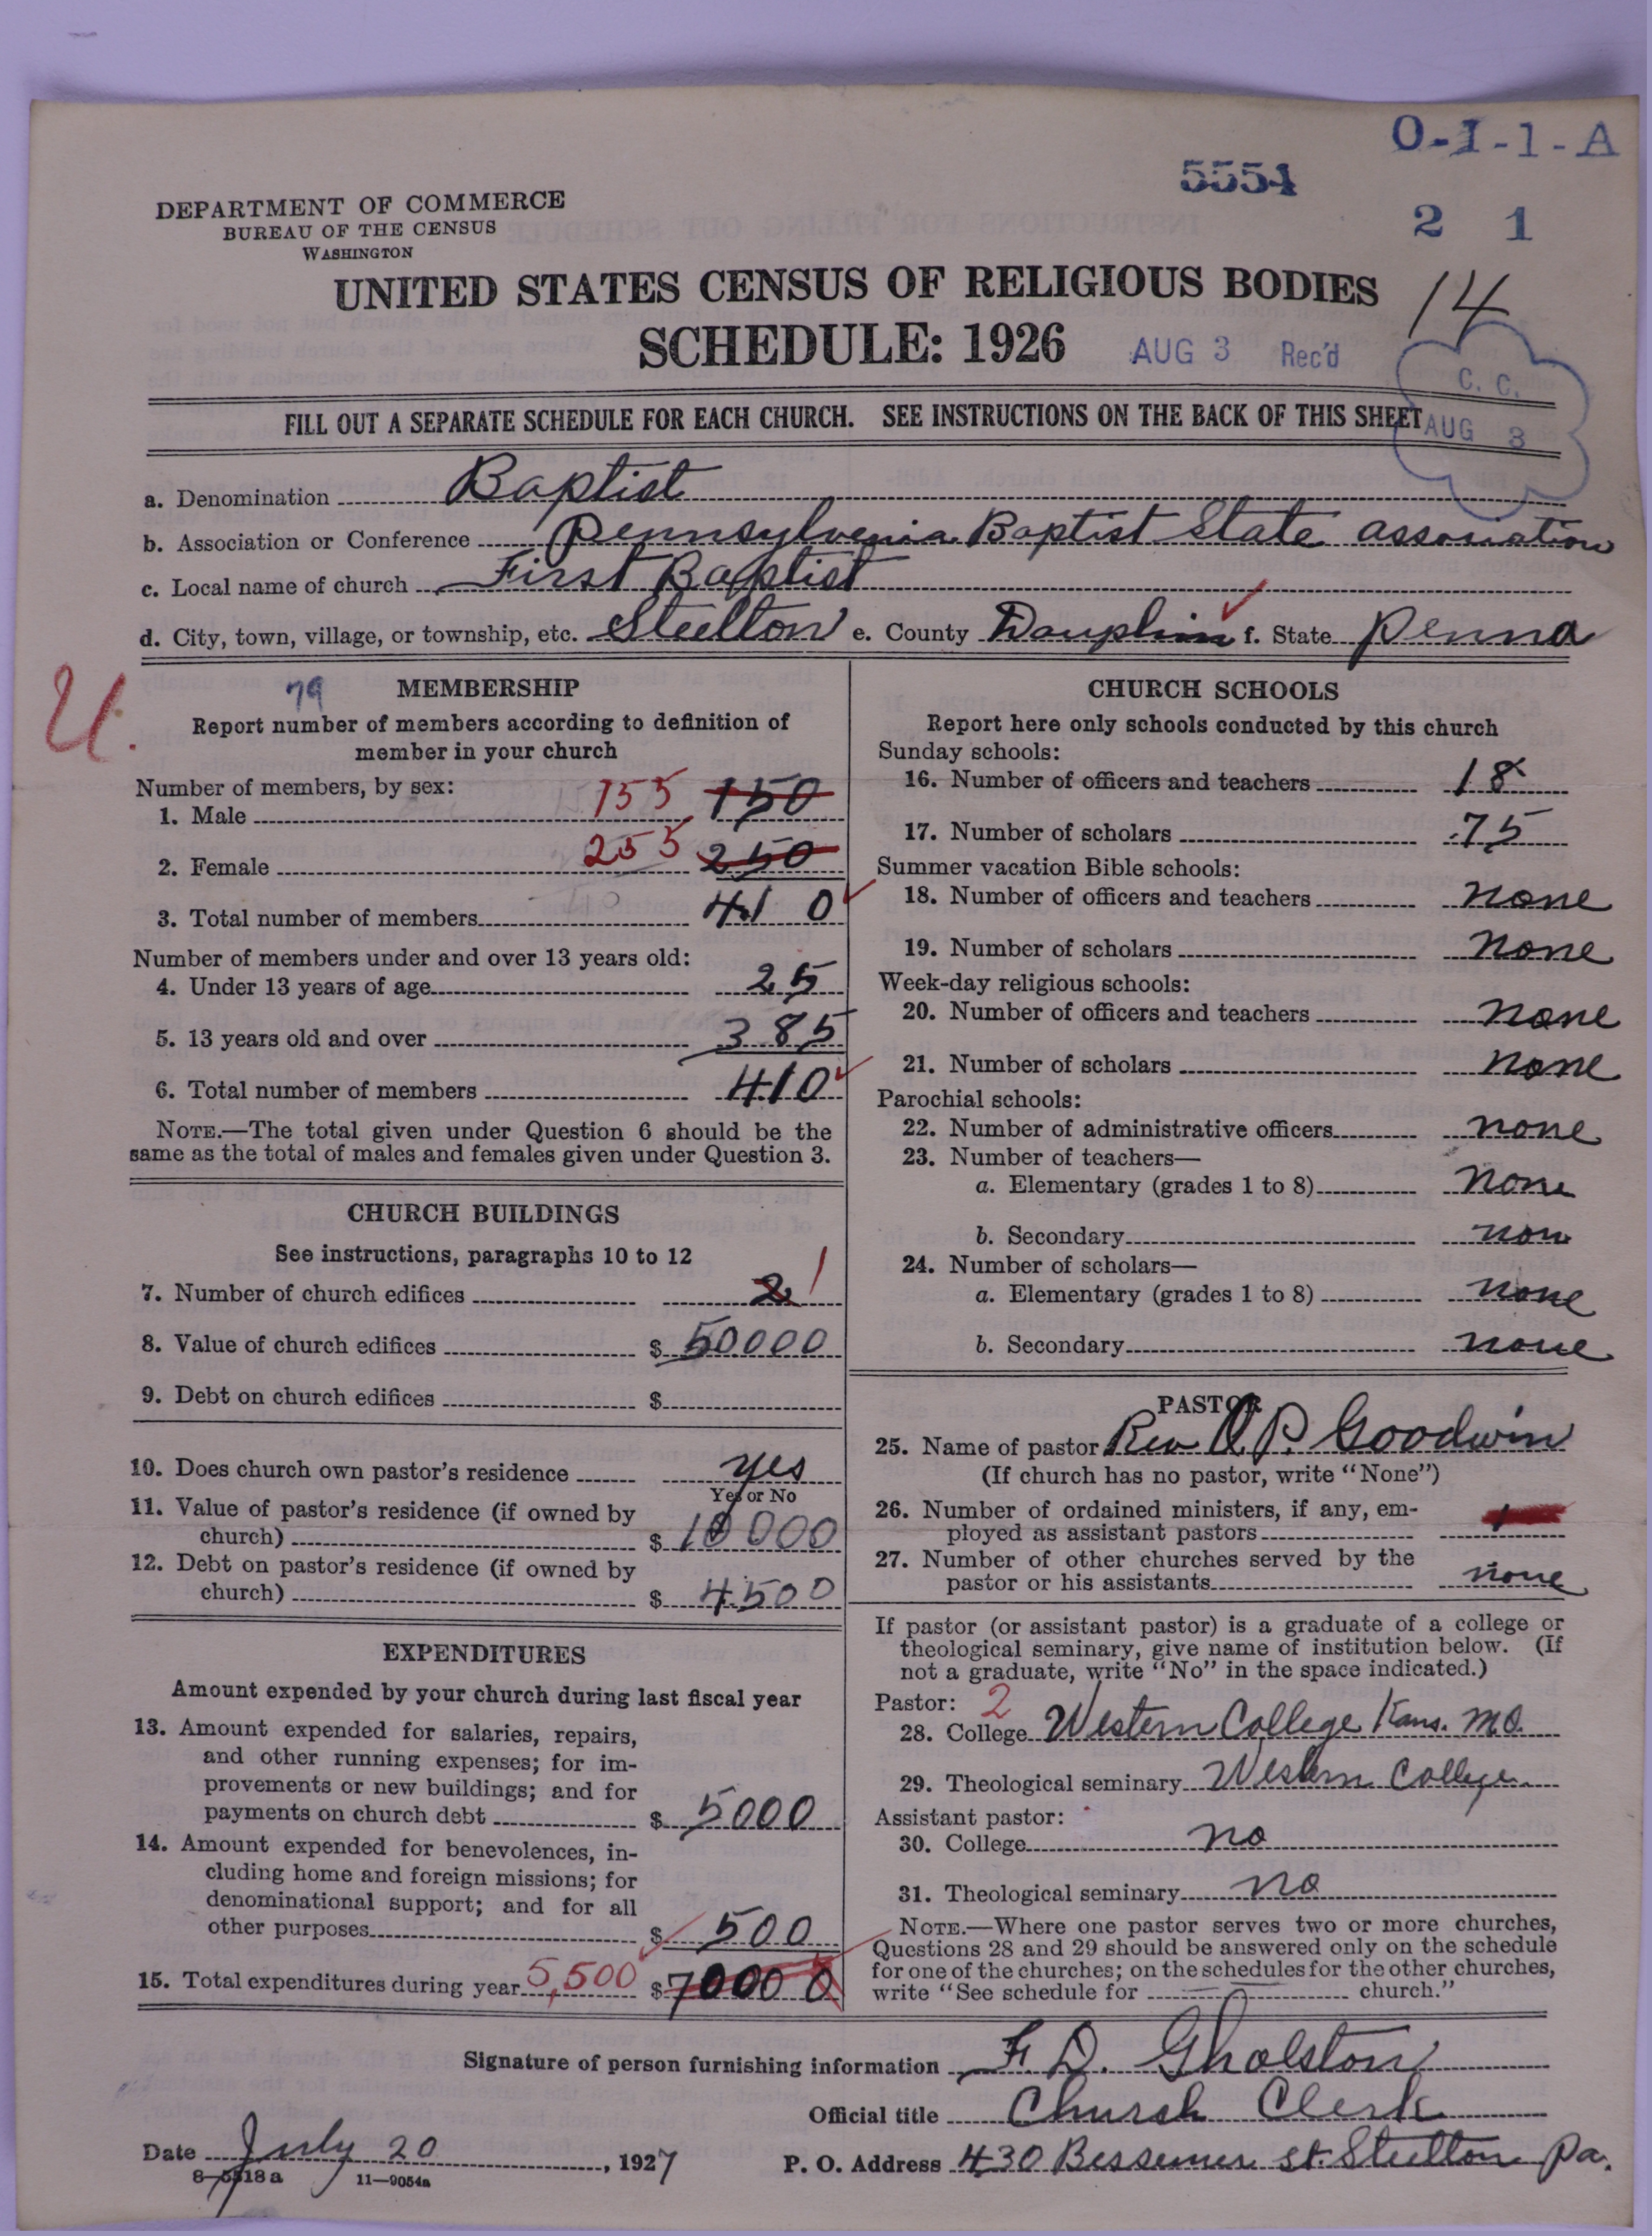 O-I-1-A
5554
DEPARTMENT OF COMMERCE
BUREAU OF THE CENSUS
WASHINGTON
2 1
UNITED STATES CENSUS OF RELIGIOUS BODIES
14
SCHEDULE: 1926
AUG 3 Rec'd
C. C.
AUG 3
FILL OUT A SEPARATE SCHEDULE FOR EACH CHURCH. SEE INSTRUCTIONS ON THE BACK OF THIS SHEET
a. Denomination Baptist
b. Association or Conference Pennsylvania Baptist State association
c. Local name of church First Baptist
d. City, town, village, or township, etc. Steelton e. County Dauphin f. State Penna
U.
79
MEMBERSHIP
Report number of members according to definition of
member in your church
Number of members, by sex:
1. Male 155 150
2. Female 255 250
3. Total number of members 410
Number of members under and over 13 years old:
4. Under 13 years of age 25
5. 13 years old and over 385
6. Total number of members 410
NOTE.—The total given under Question 6 should be the
same as the total of males and females given under Question 3.
CHURCH BUILDINGS
See instructions, paragraphs 10 to 12
7. Number of church edifices 2 1
8. Value of church edifices $ 50000
9. Debt on church edifices $
10. Does church own pastor's residence yes
Yes or No
11. Value of pastor's residence (if owned by
church) $ 10000
12. Debt on pastor's residence (if owned by
church) $ 4500
EXPENDITURES
Amount expended by your church during last fiscal year
13. Amount expended for salaries, repairs,
and other running expenses; for im-
provements or new buildings; and for
payments on church debt $ 5000
14. Amount expended for benevolences, in-
cluding home and foreign missions; for
denominational support; and for all
other purposes $ 500
15. Total expenditures during year 5,500 $ 70000
CHURCH SCHOOLS
Report here only schools conducted by this church
Sunday schools:
16. Number of officers and teachers 18
17. Number of scholars 75
Summer vacation Bible schools:
18. Number of officers and teachers none
19. Number of scholars none
Week-day religious schools:
20. Number of officers and teachers none
21. Number of scholars none
Parochial schools:
22. Number of administrative officers none
23. Number of teachers—
a. Elementary (grades 1 to 8) none
b. Secondary non
24. Number of scholars—
a. Elementary (grades 1 to 8) none
b. Secondary none
PASTOR
25. Name of pastor Rev O. P. Goodwin
(If church has no pastor, write "None")
26. Number of ordained ministers, if any, em-
ployed as assistant pastors 1
27. Number of other churches served by the
pastor or his assistants none
If pastor (or assistant pastor) is a graduate of a college or
theological seminary, give name of institution below. (If
not a graduate, write "No" in the space indicated.)
Pastor: 2
28. College Western College Kans. Mo.
29. Theological seminary Western College
Assistant pastor:
30. College no
31. Theological seminary no
NOTE.—Where one pastor serves two or more churches,
Questions 28 and 29 should be answered only on the schedule
for one of the churches; on the schedules for the other churches,
write "See schedule for church."
Signature of person furnishing information F. D. Gholston
Official title Church Clerk
Date July 20, 1927
P. O. Address 430 Bessemer st. Steelton Pa.
8-5518a 11—9054a